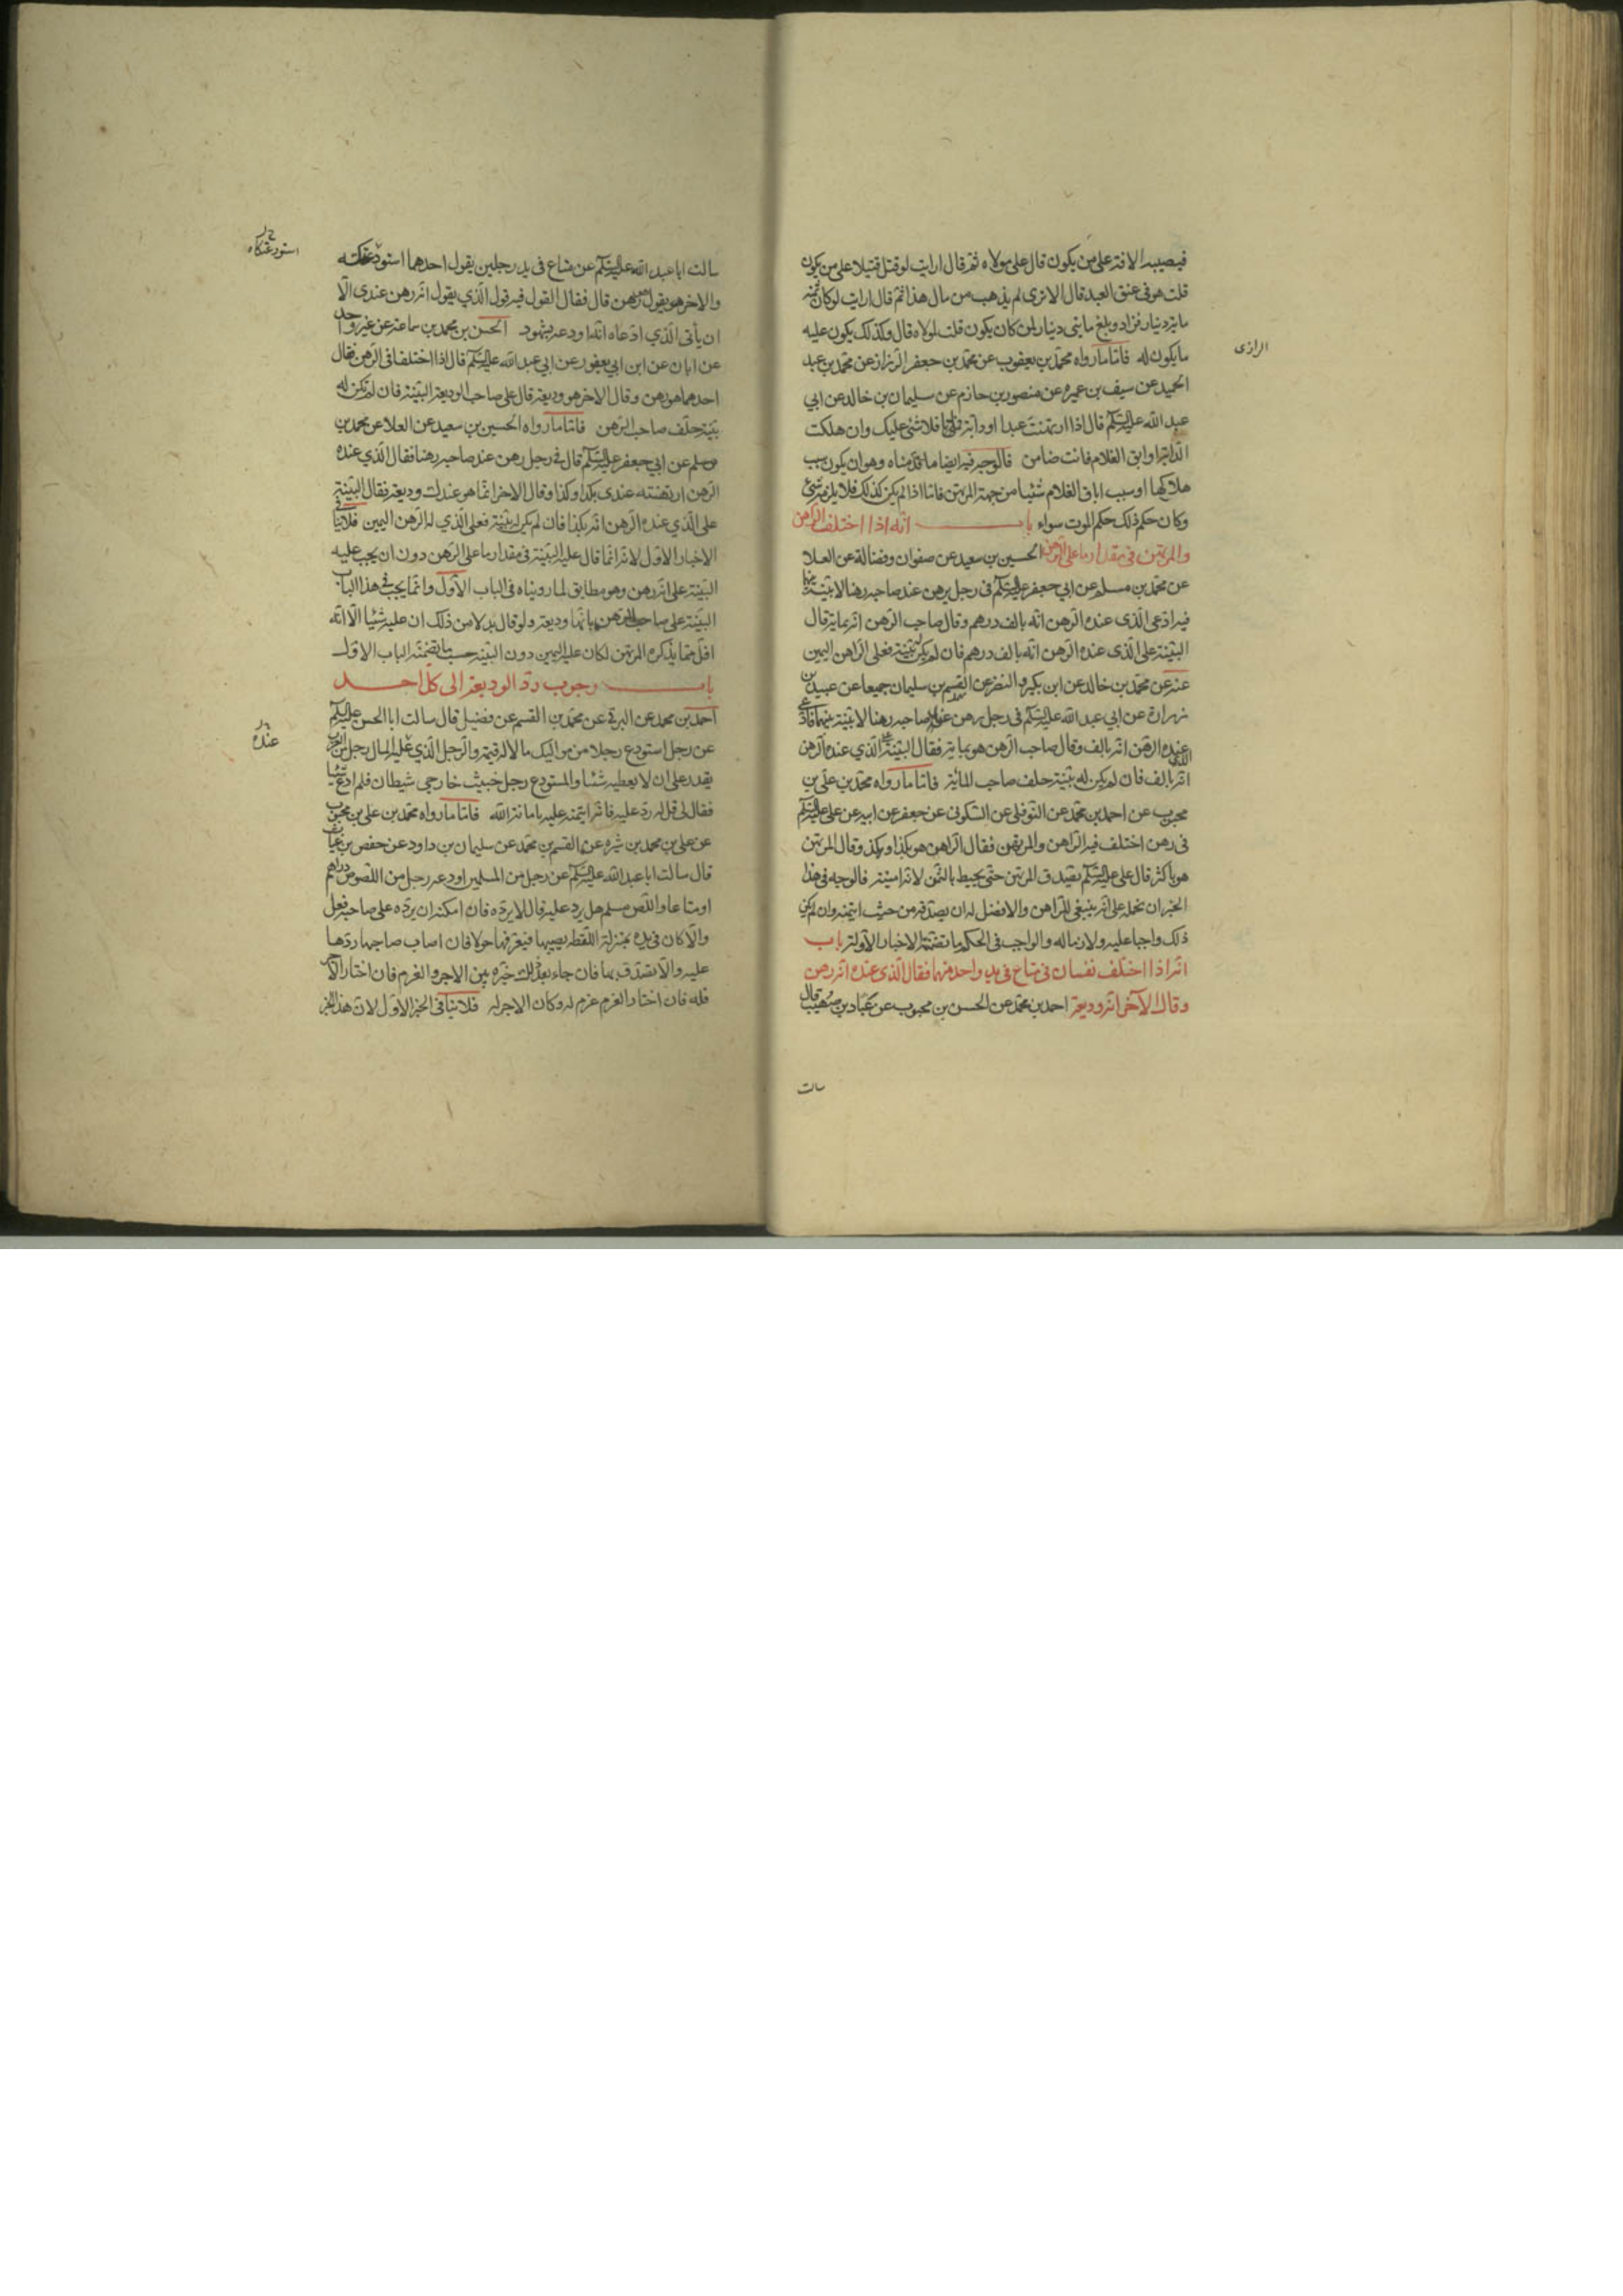 فيصيبه الافة على من يكون قال على مولاه ثم قال ارايت لو قتل قتيلا على من يكون
قلت هو في عنق العبد قال الا ترى لم يذهب من مال هذا ثم قال ارايت لو كان ثمنه
مائة دينار فزاد وبلغ مايتي دينار لمن كان يكون قلت لمولاه قال وكذلك يكون عليه
ما يكون له فاما ما رواه محمد بن يعقوب عن محمد بن جعفر الرزاز عن محمد بن عبد
الرازى
الحميد عن سيف بن عميره عن منصور بن حازم عن سليمان بن خالد عن ابي
عبد الله عليه السلم قال اذا ارتهنت عبدا او دابة فماتا فلا شئ عليك وان هلكت
الدابة او ابق الغلام فانت ضامن فالوجه فيه ايضا ما قدمناه وهو ان يكون سبب
هلاكها او سبب اباق الغلام شئيا من جهة المرتهن فاما اذا لم يكن كذلك فلا يلزمه شئ
وكان حكم ذلك حكم الموت سواء باب انه اذا اختلف الراهن
والمرتهن في مقدار ما على الرهن الحسين بن سعيد عن صفوان وفضالة عن العلا
عن محمد بن مسلم عن ابي جعفر عليه السلم في رجل يرهن عند صاحبه رهنا لا بينة بينهما
فيه ادعى الذى عنده الرهن انه بالف درهم وقال صاحب الرهن انه بماية قال
البينة على الذى عنده الرهن انه بالف درهم فان لم يكن له بينة فعلى الراهن اليمين
عنه عن محمد بن خالد عن ابن بكير والنضر عن القسم بن سليمان جميعا عن عبيد بن
زرارة عن ابي عبد الله عليه السلم في رجل رهن عند صاحبه رهنا لا بينة بينهما فادعى
الذي عنده الرهن انه بالف وقال صاحب الرهن هو بماية فقال البينة على الذي عنده الرهن
انه بالف فان لم يكن له بينة حلف صاحب المائة فاما ما رواه محمد بن علي بن
محبوب عن احمد بن محمد عن النوفلى عن السكونى عن جعفر عن ابيه عن على عليه السلم
في رهن اختلف فيه الراهن والمرتهن فقال الراهن هو بكذا وبكذا وقال المرتهن
هو باكثر قال على عليه السلم يصدق المرتهن حتى يحيط بالثمن لانه امينه فالوجه في هذا
الخبر ان نحمله على انه ينبغى للراهن والافضل له ان يصدقه من حيث ايتمنه وان لم يكن
ذلك واجبا عليه ولا لازما له والواجب في الحكم ما تضمنته الاخبار الاولة باب
انه اذا اختلف نفسان في متاع في يد واحد منهما فقال الذى عنده انه رهن
وقال الآخر انه وديعة احمد بن محمد عن الحسن بن محبوب عن عباد بن صهيب قال
سالت
سالت ابا عبد الله عليه السلم عن متاع في يد رجلين يقول احدهما استودعتكه
استودعتكاه
والاخر هو يقول هو رهن قال فقال القول فيه قول الذي يقول انه رهن عندى الا
ان يأتى الذي ادعاه انه اودعه بشهود الحسن بن محمد بن سماعة عن غير واحد
عن ابان عن ابن ابي يعفور عن ابي عبد الله عليه السلم قال اذا اختلفا في الرهن فقال
احدهما هو رهن وقال الاخر هو وديعة قال على صاحب الوديعة البينة فان لم تكن له
بينة حلف صاحب الرهن فاما ما رواه الحسين بن سعيد عن العلا عن محمد بن
مسلم عن ابي جعفر عليه السلم قال في رجل رهن عند صاحبه رهنا فقال الذي عنده
الرهن ارتهنته عندى بكذا وكذا وقال الاخر انما هو عندك وديعة فقال البينة
على الذي عنده الرهن انه بكذا فان لم يكن له بينة فعلى الذي له الرهن اليمين فلا ينافي
الاخبار الاول لانه انما قال عليه البينة في مقدار ما على الرهن دون ان يجب عليه
البينة على انه رهن وهو مطابق لما رويناه في الباب الاول وانما يجب في هذا الباب
البينة على صاحب الرهن بانها وديعة ولو قال بدلا من ذلك ان عليه شئيا الا انه
اقل مما يذكره المرتهن لكان عليه اليمين دون البينة حسب ما تضمنه الباب الاول
باب وجوب رد الوديعة الى كل احد
احمد بن محمد عن البرقي عن محمد بن القسم عن فضيل قال سالت ابا الحسن عليه السلم
عن رجل استودع رجلا من مواليك مالا له قيمة والرجل الذي عليه المال رجل من العرب
عنده
يقدر على ان لا يعطيه شئيا والمستودع رجل خبيث خارجى شيطان فلم ادع شئيا
فقال لى قل له رد عليه فانه ايتمنه عليه بامانة الله فاما ما رواه محمد بن على بن محبوب
عن على بن محمد بن شيره عن القسم بن محمد عن سليمان بن داود عن حفص بن غياث
قال سالت ابا عبد الله عليه السلم عن رجل من المسلمين اودعه رجل من اللصوص دراهم
او متاعا واللص مسلم هل يرد عليه قال لا يرده فان امكنه ان يرده على صاحبه فعل
والا كان في يده بمنزلة اللقطة يصيبها فيعرفها حولا فان اصاب صاحبها ردها
عليه والا تصدق بها فان جاء بعد ذلك خيره بين الاجر والغرم فان اختار الاجر
فله فان اختار الغرم غرم له وكان الاجر له فلا ينافي الخبر الاول لان هذا الخبر